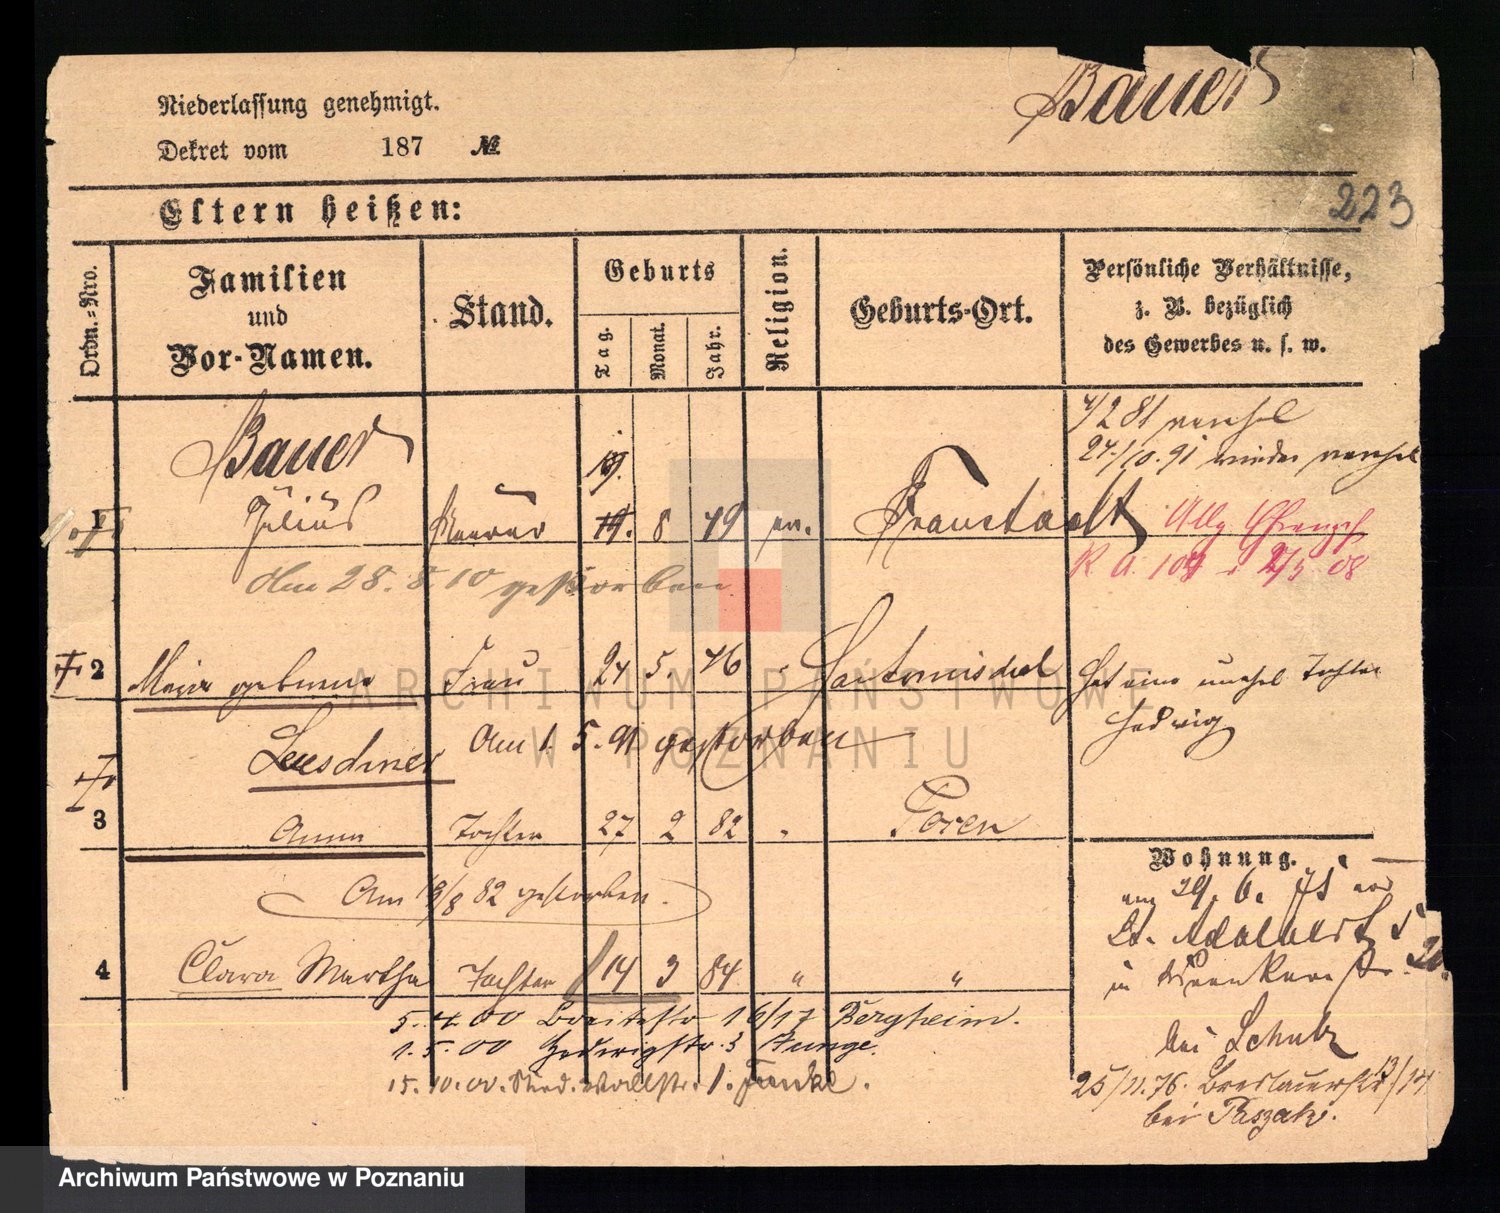 Bauer
Niederlassung genehmigt.
Dekret vom 187 №
223
Eltern heißen:
Ordn.=Nro.
Familien und Vor-Namen.
Stand.
Geburts
Tag.
Monat.
Jahr.
Religion.
Geburts-Ort.
Persönliche Verhältnisse,
z. B. bezüglich
des Gewerbes u. s. w.
4/2 81
24/10.91 wieder
Bauer
19.
1 Julius 19. 8 49 ev. Fraustadt
Am 28. 8. 10 gestorben
2 geborene Frau 24 5. 46 "
Hat eine unehel Tochter
Hedwig
Leuschner
Am 1. 5. 91 gestorben
3 Anna Tochter 27 2 82 " Posen
Am 19/8 82 gestorben.
Wohnung.
am 29. 6. 75 von
St. Adalbert 5
in
bei Schulz
25/11.76. Breslauerstr 13/14
bei
4 Clara Martha Tochter 14 3 84 " "
5. 4. 00 Breitestr 16/17 Bergheim.
1. 5. 00 Hedwigstr. 3 Runge.
15. 10. 00. Wallstr. 1. Funke.
ARCHIWUM PAŃSTWOWE
W POZNANIU
Archiwum Państwowe w Poznaniu